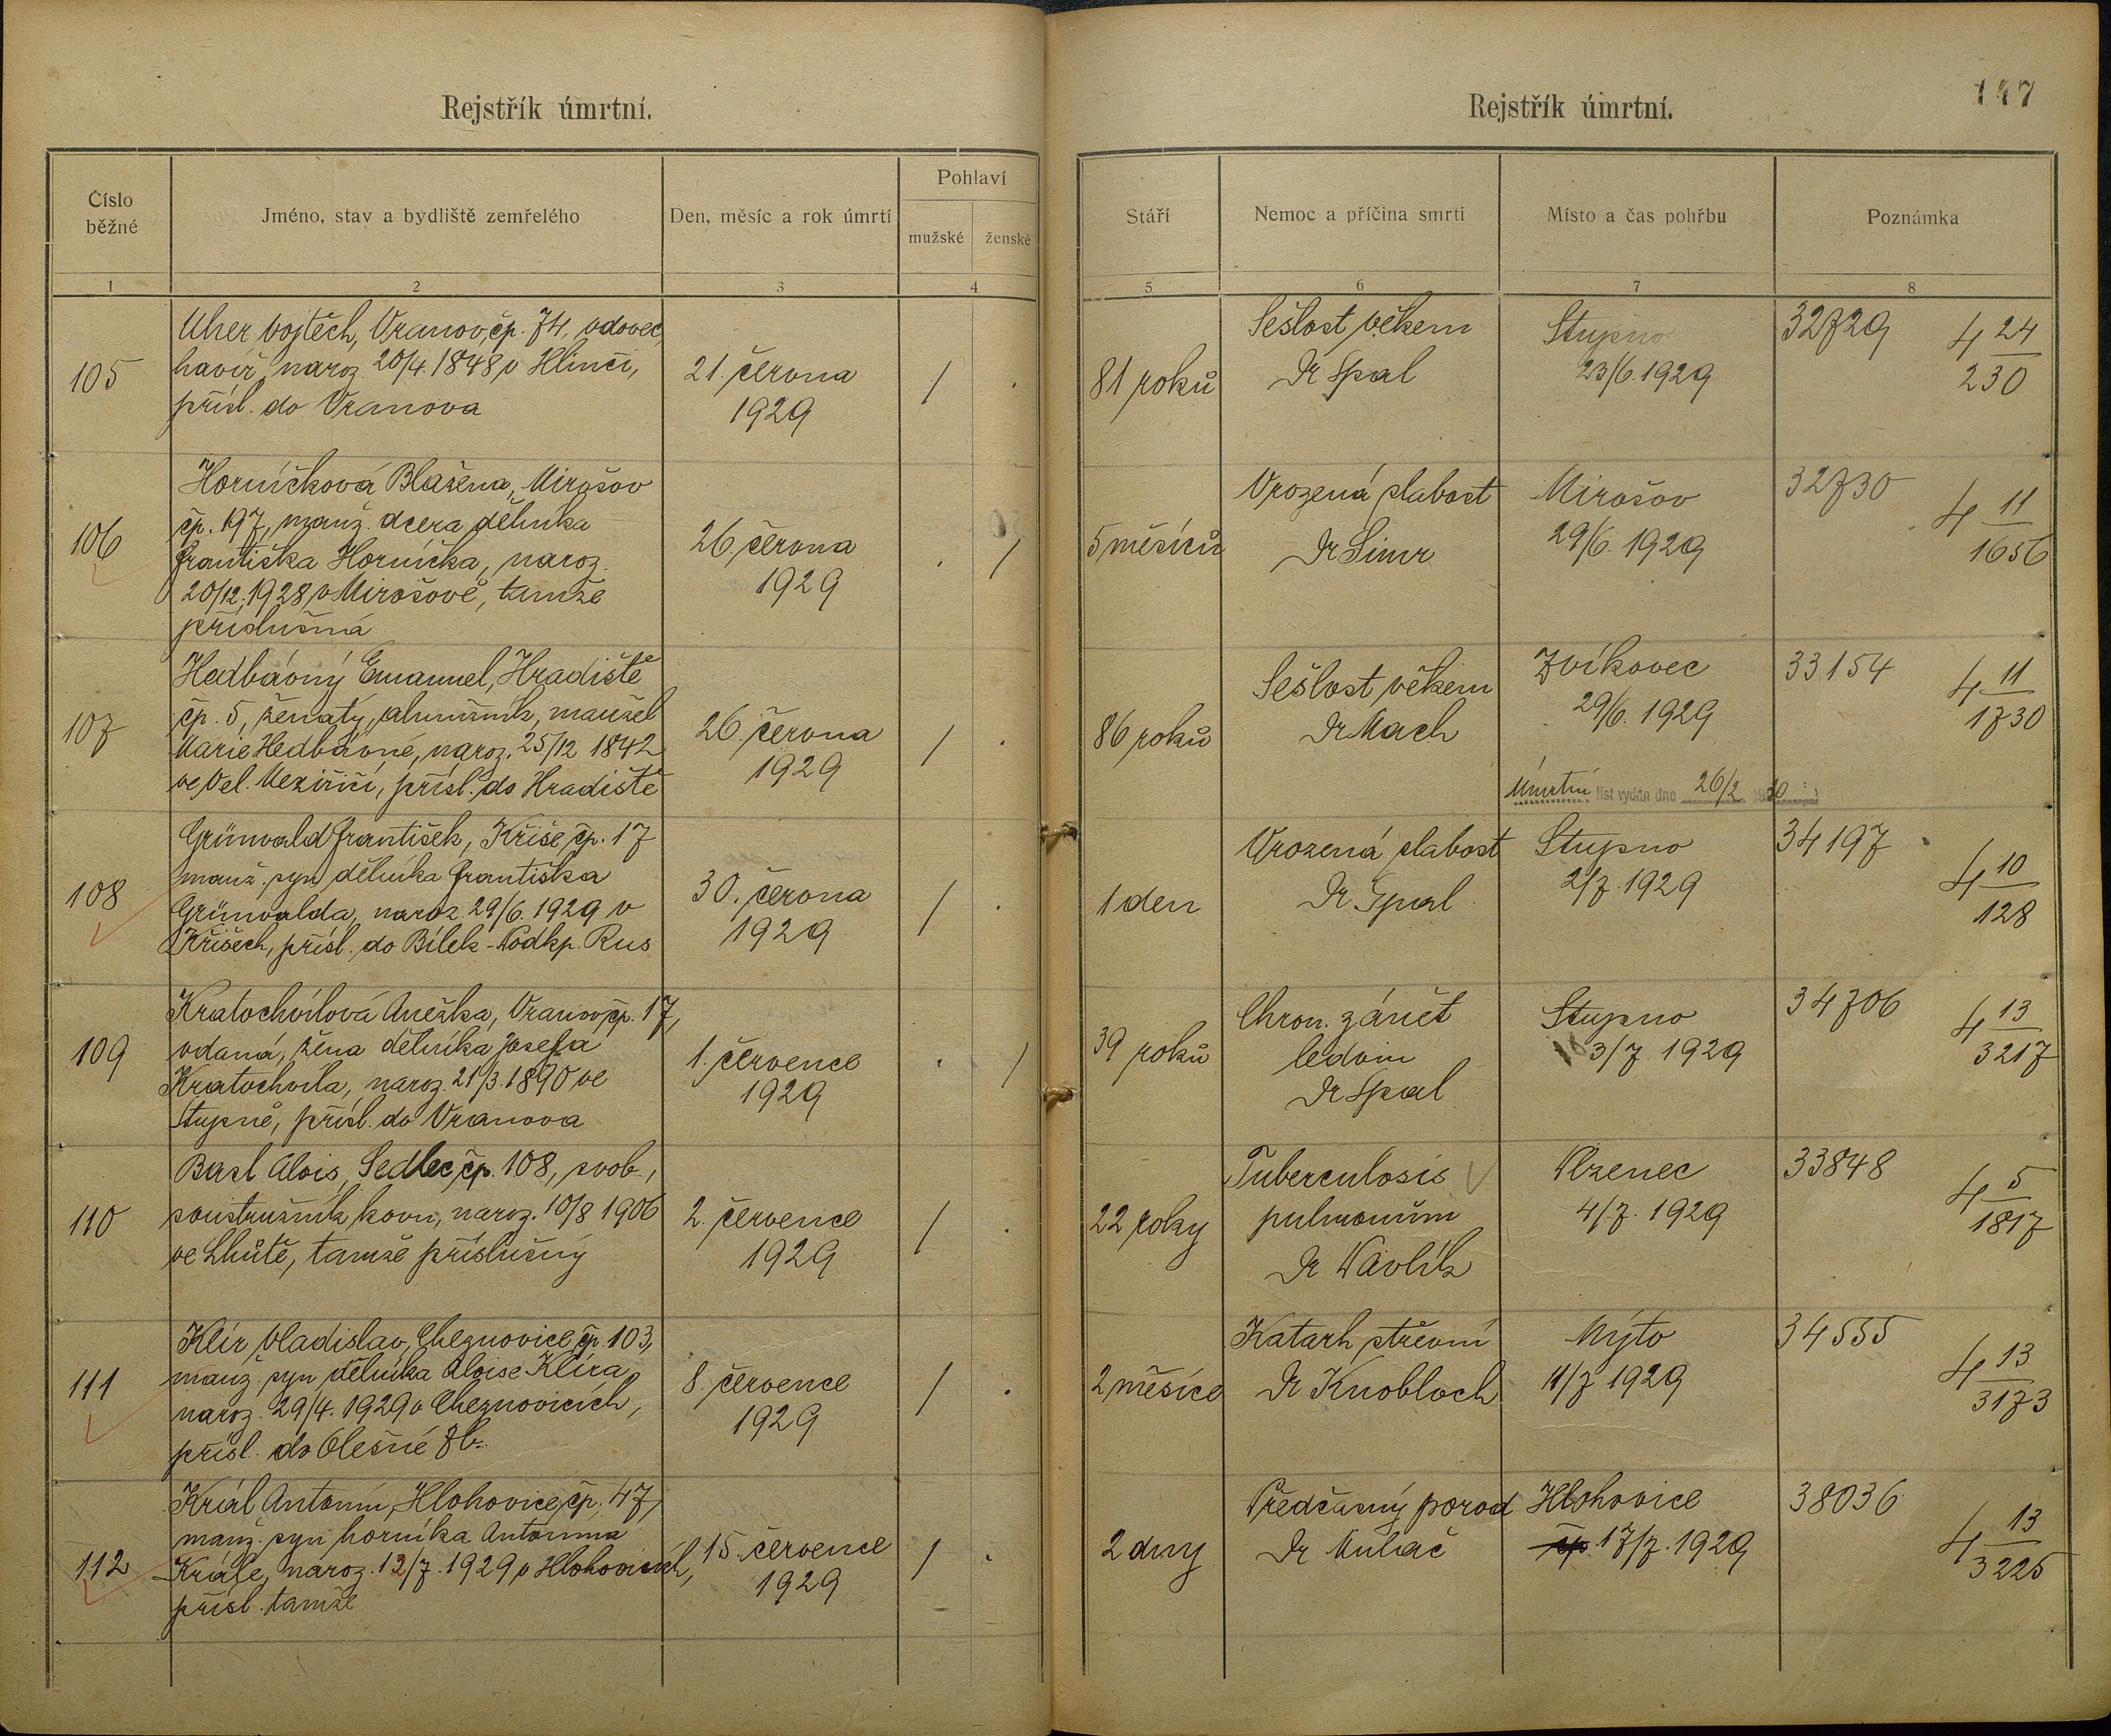 Rejstřík úmrtní.
Číslo běžné
Jméno, stav a bydliště zemřelého
Den, měsíc a rok úmrtí
Pohlaví
mužské
ženské
1
2
3
4
105
Uher Vojtěch, Vranov, čp. 74, vdovec,
havíř, naroz. 20/4. 1848 v Hlinči,
přísl. do Vranova
21. června
1929
/
.
106
Horníčková Blažena, Mirošov
čp. 197, manž. dcera dělníka
Františka Horníčka, naroz.
20/12. 1928 v Mirošově, tamže
příslušná
26. června
1929
.
/
107
Hedbávný Emanuel, Hradiště
čp. 5, ženatý, almužník, manžel
Marie Hedbávné, naroz. 25/12 1842
ve Vel. Meziříčí, přísl. do Hradiště
26. června
1929
/
.
108
Grünwald František, Kříše, čp. 17
manž. syn dělníka Františka
Grünwalda, naroz. 29/6. 1929 v
Kříšech, přísl. do Bílek - Podkp. Rus
30. června
1929
/
.
109
Kratochvílová Anežka, Vranov, čp. 17,
vdaná, žena dělníka Josefa
Kratochvíla, naroz. 21/3. 1890 ve
Stupně, přísl. do Vranova
1. července
1929
.
/
110
Basl Alois, Sedlec, čp. 108, svob.,
soustružník kovu, naroz. 10/8 1906
ve Lhůtě, tamže příslušný
2. července
1929
/
.
111
Klír Vladislav, Cheznovice, čp. 103,
manž. syn dělníka Aloise Klíra,
naroz. 29/4. 1929 v Cheznovicích,
přísl. do Olešné Zb.
8. července
1929
/
.
112
Král Antonín, Hlohovice, čp. 47,
manž. syn horníka Antonína
Krále, naroz. 13/7. 1929 v Hlohovicích,
přísl. tamže
15. července
1929
/
.
Rejstřík úmrtní.
147
Stáří
Nemoc a příčina smrti
Místo a čas pohřbu
Poznámka
5
6
7
8
81 roků
Sešlost věkem
Dr Spal
Stupno
23/6. 1929
32729
4 24
230
5 měsíců
Vrozená slabost
Dr Šimr
Mirošov
29/6. 1929
32730
4 11
1656
86 roků
Sešlost věkem
Dr Mach
Zvíkovec
29/6. 1929
33154
4 11
1730
Úmrtní list vydán dne 26/2 1930
1 den
Vrozená slabost
Dr Spal
Stupno
2/7. 1929
34197
4 10
128
39 roků
Chron. zánět
ledvin
Dr Spal
Stupno
3/7. 1929
34706
4 13
3217
22 roky
Tuberculosis
pulmonům
Dr Pavlík
Plzenec
4/7. 1929
33848
4 5
1817
2 měsíce
Katarh střevní
Dr Knobloch
Mýto
11/7 1929
34555
4 13
3173
2 dny
Předčasný porod
Dr Muhač
Hlohovice
17/7. 1929
38036
4 13
3225